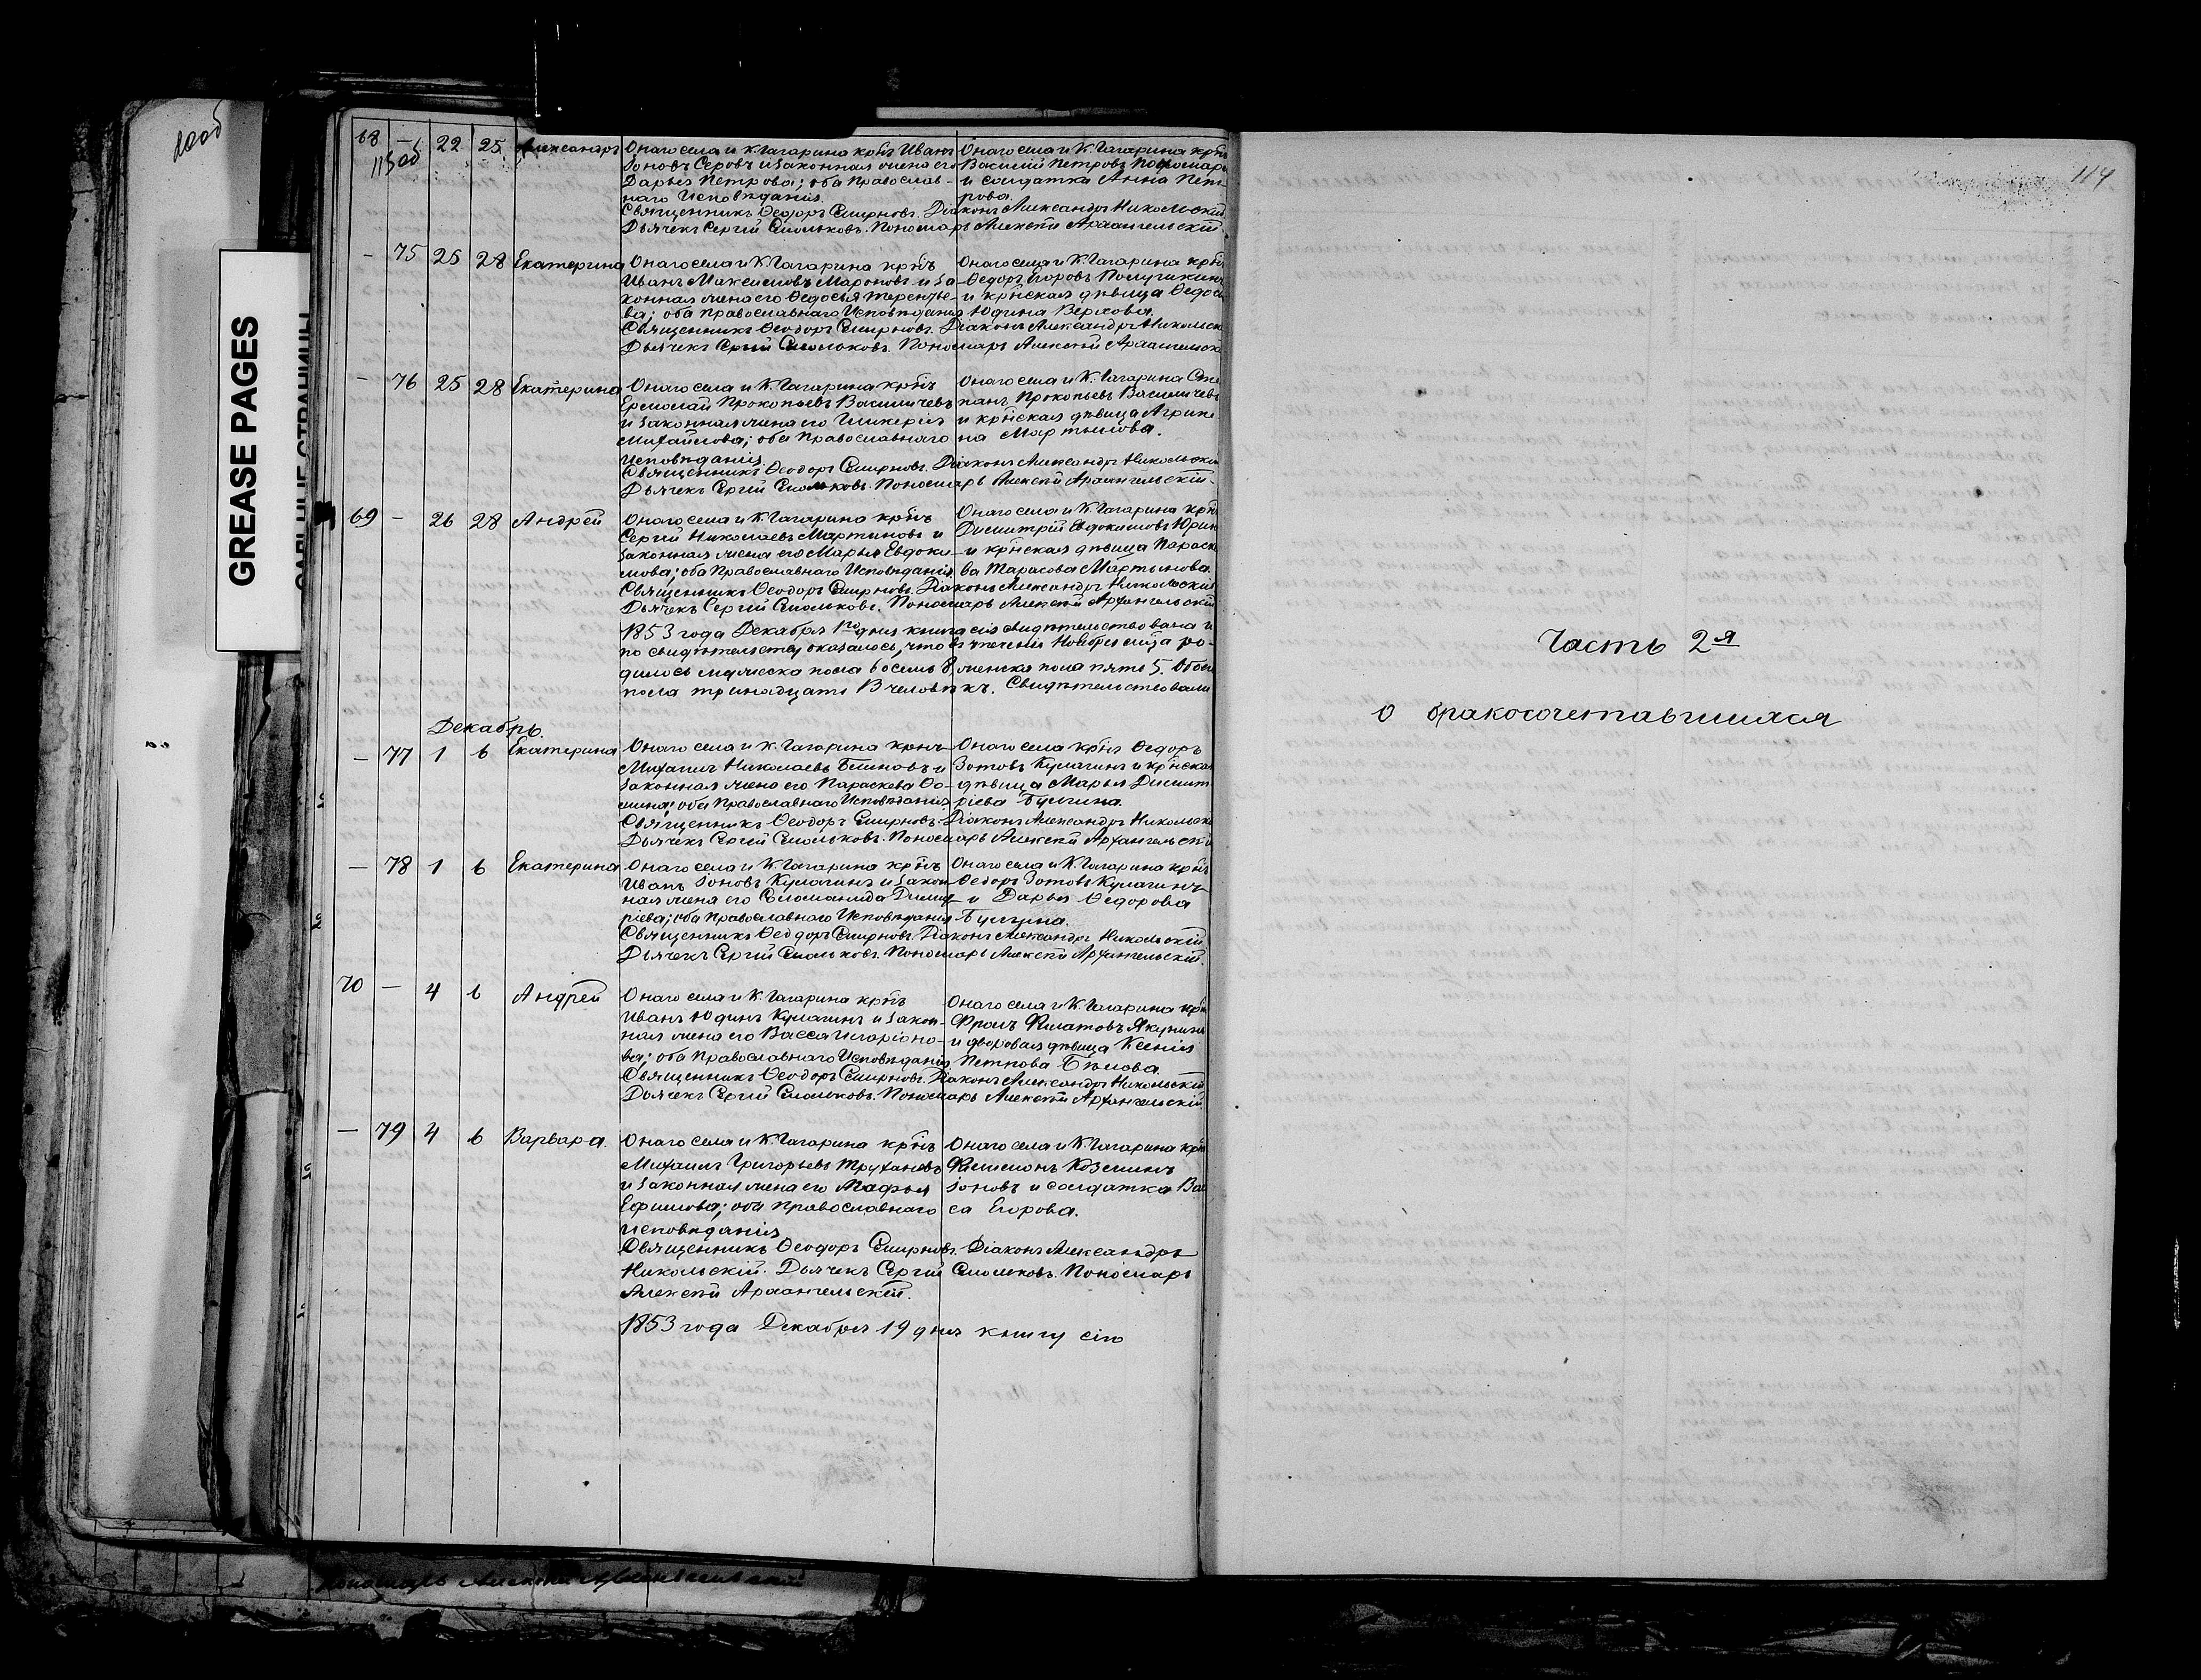 GREASE PAGES
113 об
68 — 22 25 Александръ
Онаго села и К. Гагарина кр̃нъ Иванъ
Зоновъ Серовъ и законная жена его
Дарья Петрова; оба Православ-
наго Исповѣданія.
Онаго села и К. Гагарина кр̃нъ
Василій Петровъ
и солдатка Анна Пет-
рова.
Священникъ Ѳеодоръ Смирновъ. Діаконъ Александръ Никольскій
Дьячекъ Сергій Смольковъ. Пономарь Алексѣй Архангельскій.
— 75 25 28 Екатерина
Онаго села и К. Гагарина кр̃нъ
Иванъ Максимовъ Мароновъ и за-
конная жена его Ѳедосья Терентье-
ва; оба православнаго Исповѣданія
Онаго села и К. Гагарина кр̃нъ
Ѳедоръ Егоровъ Полушкинъ
и кр̃нская дѣвица Ѳедось
Юдина Верхова.
Священникъ Ѳеодоръ Смирновъ. Діаконъ Александръ Никольск
Дьячекъ Сергій Смольковъ. Пономарь Алексѣй Архангельск
— 76 25 28 Екатерина
Онаго села и К. Гагарина кр̃нъ
Ермолай Прокопьевъ Василичевъ
и законная жена его Гликерія
Михайлова; оба Православнаго
Исповѣданія
Онаго села и К. Гагарина Сте
панъ Прокопьевъ Василичевъ
и кр̃нская дѣвица Агрипе
на Мартынова.
Священникъ Ѳеодоръ Смирновъ. Діаконъ Александръ Никольскій
Дьячекъ Сергій Смольковъ. Пономарь Алексѣй Архангельскій.
69 — 26 28 Андрей
Онаго села и К. Гагарина кр̃нъ
Сергій Николаевъ Мартиновъ и
законная жена его Марья Евдоки-
мова; оба Православнаго Исповѣданія.
Онаго села и К. Гагарина кр̃нъ
Димитрій Евдокимовъ Юрин
и кр̃нская дѣвица Параске
ва Тарасова Мартынова.
Священникъ Ѳеодоръ Смирновъ. Діаконъ Александръ Никольскій
Дьячекъ Сергій Смольковъ. Пономарь Алексѣй Архангельскій
1853 года Декабря 1го дня книга сія свидѣтельствована и
по свидѣтельству оказалось, что въ теченіи Ноября мѣ̃ца ро-
дилось мужеска пола восемь 8, женска пола пять 5. Обоего
пола тринадцать 13 человѣкъ. Свидѣтельствовали
Декабрь.
— 77 1 6 Екатерина
Онаго села и К. Гагарина кр̃нъ
Михаилъ Николаевъ Блиновъ и
законная жена его Параскева Ѳо-
мина; оба Православнаго Исповѣданія
Онаго села кр̃нъ Ѳедоръ
Зотовъ Кулагинъ и кр̃нская
дѣвица Марья Димит
ріева Булгина.
Священникъ Ѳеодоръ Смирновъ. Діаконъ Александръ Никольск
Дьячекъ Сергій Смольковъ. Пономарь Алексѣй Архангельскій
— 78 1 6 Екатерина
Онаго села и К. Гагарина кр̃нъ
Иванъ Зоновъ Кулагинъ и закон
ная жена его Соломанида Димит
ріева; оба Православнаго Исповѣданія
Онаго села и К. Гагарина кр̃нъ
Ѳедоръ Зотовъ Кулагинъ
и Дарья Ѳедорова
Булгина.
Священникъ Ѳеодоръ Смирновъ. Діаконъ Александръ Никольскій
Дьячекъ Сергій Смольковъ. Пономарь Алексѣй Архангельскій.
70 — 4 6 Андрей
Онаго села и К. Гагарина кр̃нъ
Иванъ Юдинъ Кулагинъ и закон-
ная жена его Васса Иларіоно-
ва; оба Православнаго Исповѣданія
Онаго села и К. Гагарина кр̃нъ
Фролъ Филатовъ Якунинъ
и дворовая дѣвица Ксенія
Петрова Бѣлова.
Священникъ Ѳеодоръ Смирновъ. Діаконъ Александръ Никольскій
Дьячекъ Сергій Смольковъ. Пономарь Алексѣй Архангельскій
— 79 4 6 Варвара.
Онаго села и К. Гагарина кр̃нъ
Михаилъ Григорьевъ Трухановъ
и законная жена его Марья
Ефимова; оба Православнаго
Исповѣданія
Онаго села и К. Гагарина кр̃нъ
Филимонъ Козминъ
Зоновъ и солдатка Вас
са Егорова.
Священникъ Ѳеодоръ Смирновъ. Діаконъ Александръ
Никольскій. Дьячекъ Сергій Смольковъ. Пономарь
Алексѣй Архангельскій.
1853 года Декабря 19 дня книгу сію
114
Часть 2я
о бракосочетавшихся